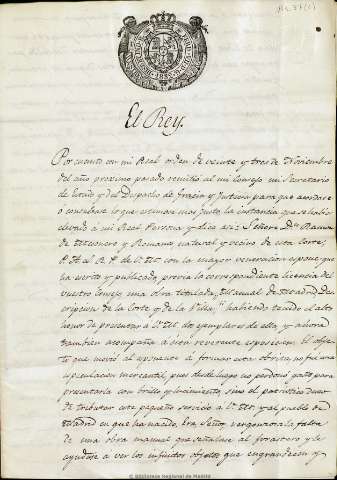 El Rey.
Por cuanto con mi Real orden de veinte y tres de Noviembre
del año proximo pasado remitió al mi Consejo mi Secretario
de Estado y del Despacho de Gracia y Justicia para que acordare
ó consultase lo que estimase mas justo, la instancia que se habia
elevado á mi Real Persona y dice asi: Señor: Dn. Ramon
de Mesonero y Romanos natural y vecino de esta Corte,
P. A. L. R. P. de V. M. con la mayor veneracion espone que
ha escrito y publicado previa la correspondiente licencia del
vuestro Consejo una obra titulada, Manual de Madrid, Des
cripcion de la Corte y de la Villa, habiendo tenido el alto
honor de presentar á V. M. dos ejemplares de ella, y ahora
tambien acompaña á esta reverente esposicion. El obje
to que movió al esponente á formar esta obrita, no fue una
especulacion mercantil, pues desde luego no perdonó gasto para
presentarla con brillo y lucimiento, sino el patriotico deseo
de tributar este pequeño servicio á V. M. y al pueblo de
Madrid en que ha nacido. Era Señor, vergonzosa la falta
de una obra manual que señalase al forastero y le
ayudase á ver los infinitos objetos que engrandecen y
© Biblioteca Regional de Madrid